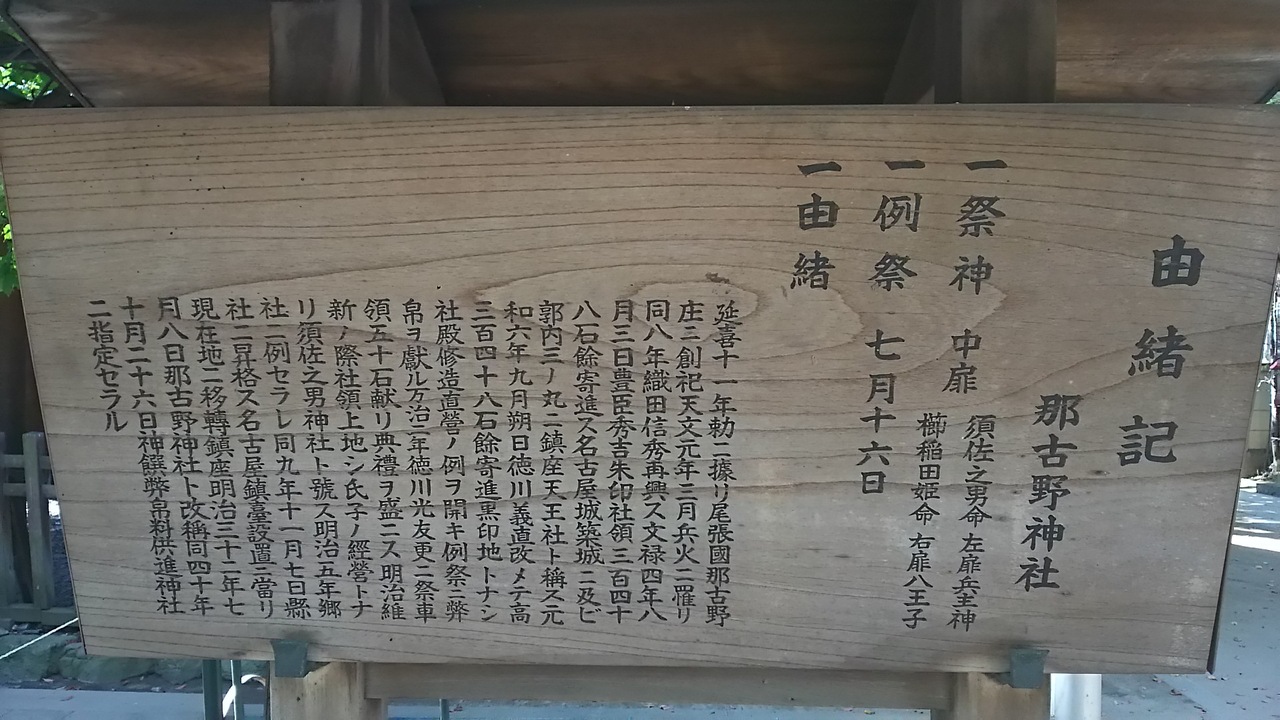 由緒記
那古野神社
一祭神 中扉 須佐之男命 左扉兵主神
櫛稲田姫命 右扉八王子
一例祭 七月十六日
一由緒
延喜十一年勅ニ據リ尾張國那古野
庄ニ創祀天文元年三月兵火ニ罹リ
同八年織田信秀再興ス文禄四年八
月三日豊臣秀吉朱印社領三百四十
八石餘寄進ス名古屋城築城ニ及ビ
郭内三ノ丸ニ鎮座天王社ト稱ス元
和六年九月朔日徳川義直改メテ高
三百四十八石餘寄進黒印地トナシ
社殿修造直營ノ例ヲ開キ例祭ニ弊
帛ヲ獻ル万治二年徳川光友更ニ祭車
領五十石献リ典禮ヲ盛ニス明治維
新ノ際社領上地シ氏子ノ經營トナ
リ須佐之男神社ト號ス明治五年郷
社ニ例セラレ同九年十一月七日縣
社ニ昇格ス名古屋鎮臺設置ニ當リ
現在地ニ移轉鎮座明治三十二年七
月八日那古野神社ト改稱同四十年
十月二十六日神饌弊帛料供進神社
ニ指定セラル